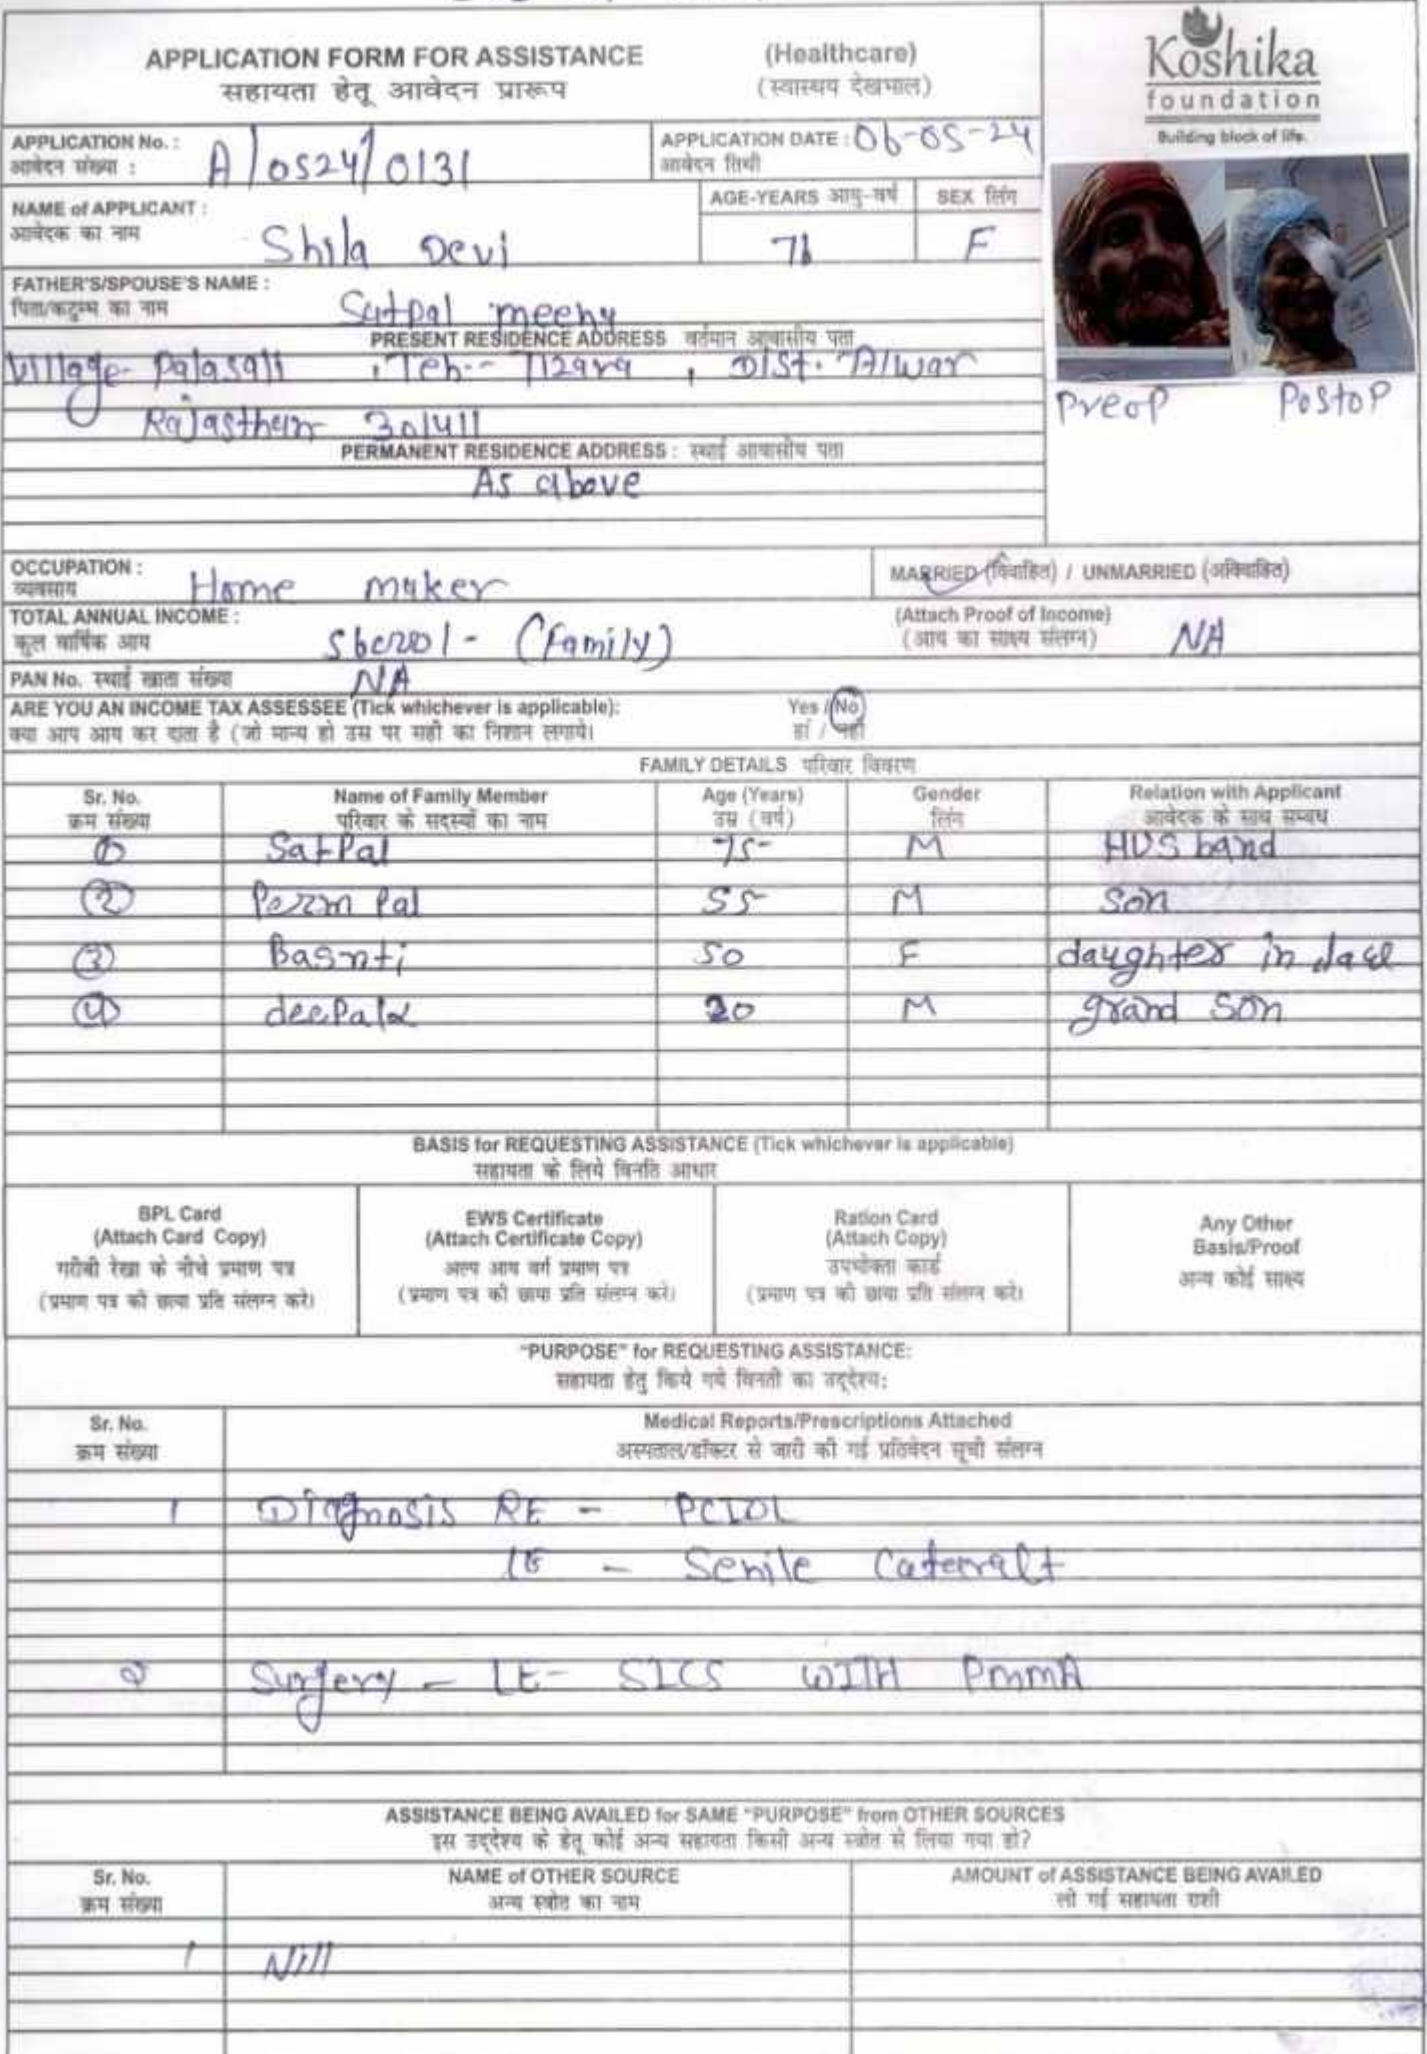 APPLICATION FORM FOR ASSISTANCE (Healthcare)
सहायता हेतू आवेदन प्रारूप (स्वास्थय देखभाल)
Koshika
foundation
Building block of life.
APPLICATION No. : A/0524/0131
आवेदन संख्या :
APPLICATION DATE : 06-05-24
आवेदन तिथी
NAME of APPLICANT : Shila Devi
आवेदक का नाम
AGE-YEARS आयु-वर्ष
SEX लिंग
F
FATHER'S/SPOUSE'S NAME : Satpal
पिता/कटुम्भ का नाम
PRESENT RESIDENCE ADDRESS वर्तमान आवासीय पता
Village- , Teh-- , Dist. Alwar
Rajasthan 301411
Preop Postop
PERMANENT RESIDENCE ADDRESS : स्थाई आवासीय पता
As above
OCCUPATION : Home maker
व्यवसाय
MARRIED (विवाहित) / UNMARRIED (अविवाहित)
TOTAL ANNUAL INCOME : (Family)
कुल वार्षिक आय
(Attach Proof of Income) NA
(आय का साक्ष्य संलग्न)
PAN No. स्थाई खाता संख्या NA
ARE YOU AN INCOME TAX ASSESSEE (Tick whichever is applicable): Yes / No
क्या आप आय कर दाता है (जो मान्य हो उस पर सही का निशान लगाये। हां / नहीं
FAMILY DETAILS परिवार विवरण
Sr. No. Name of Family Member Age (Years) Gender Relation with Applicant
क्रम संख्या परिवार के सदस्यों का नाम उम्र (वर्ष) लिंग आवेदक के साथ सम्बध
1 SatPal 75 M HUSband
2 Pal 55 M Son
3 Basnti 50 F daughter in
4 20 M grand Son
BASIS for REQUESTING ASSISTANCE (Tick whichever is applicable)
सहायता के लिये विनति आधार
BPL Card
(Attach Card Copy)
गरीबी रेखा के नीचे प्रमाण पत्र
(प्रमाण पत्र की छाया प्रति संलग्न करे)
EWS Certificate
(Attach Certificate Copy)
अल्प आय वर्ग प्रमाण पत्र
(प्रमाण पत्र की छाया प्रति संलग्न करे)
Ration Card
(Attach Copy)
उपभोक्ता कार्ड
(प्रमाण पत्र की छाया प्रति संलग्न करे)
Any Other
Basis/Proof
अन्य कोई साक्ष्य
"PURPOSE" for REQUESTING ASSISTANCE:
सहायता हेतु किये गये विनती का उद्देश्य:
Sr. No. Medical Reports/Prescriptions Attached
क्रम संख्या अस्पताल/डॉक्टर से जारी की गई प्रतिवेदन सूची संलग्न
1 Diagnosis RE - PCIOL
LE - Senile
2 Surgery - LE- SICS WITH PmmA
ASSISTANCE BEING AVAILED for SAME "PURPOSE" from OTHER SOURCES
इस उद्देश्य के हेतू कोई अन्य सहायता किसी अन्य स्त्रोत से लिया गया हो?
Sr. No. NAME of OTHER SOURCE AMOUNT of ASSISTANCE BEING AVAILED
क्रम संख्या अन्य स्त्रोत का नाम ली गई सहायता राशी
1 Nill